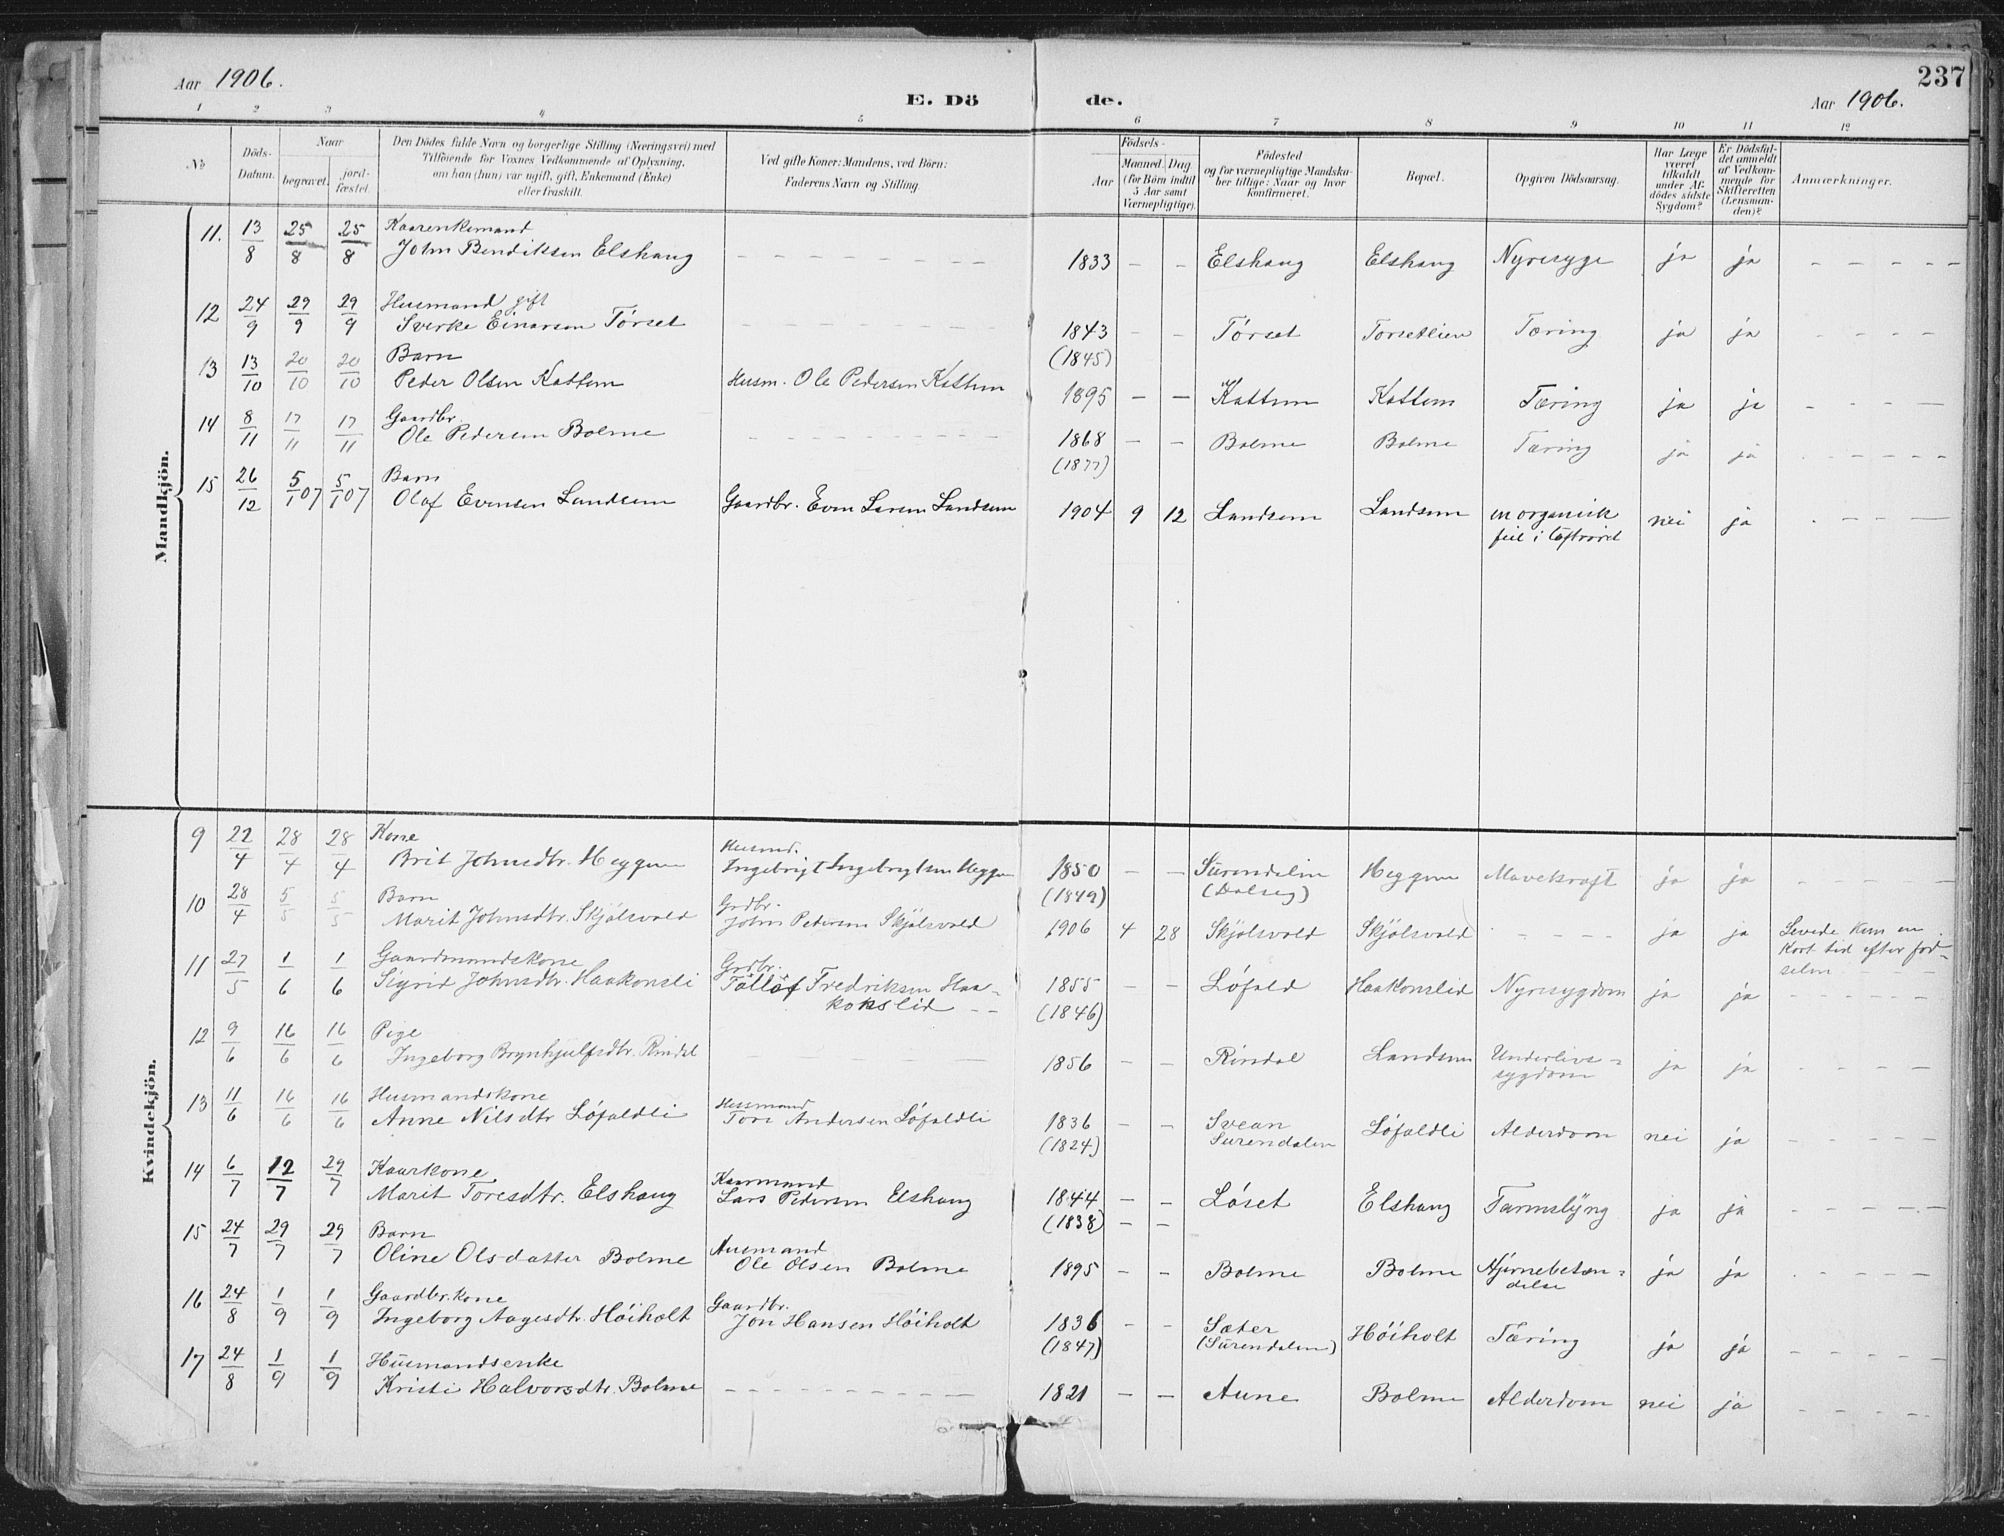 237
Aar 1906.
E. Dö de.
Aar 1906.
1 2 3 4 5 6 7 8 9 10 11 12
No
Döds-
Datum.
Naar
begravet.
jord-
fæstet.
Den Dödes fulde Navn og borgerlige Stilling (Næringsvei) med
Tilföiende for Voxnes Vedkommende af Oplysning,
om han (hun) var ugift, gift, Enkemand (Enke)
eller fraskilt.
Ved gifte Koner: Mandens, ved Börn:
Faderens Navn og Stilling.
Födsels-
Aar
Maaned. Dag
(for Börn indtil
5 Aar samt
Værnepligtige).
Födested
og for værnepligtige Mandska-
ber tillige: Naar og hvor
konfirmeret.
Bopæl.
Opgiven Dödsaarsag.
Har Læge
været
tilkaldt
under Af-
dödes sidste
Sygdom?
Er Dödsfal-
det anmeldt
af Vedkom-
mende for
Skifteretten
(Lensman-
den)?
Anmærkninger.
Mandkjön.
11. 13/8 25/8 25/8 Kaarenkemand
John Bendiksen Elshaug - - - 1833 - - Elshaug Elshaug Nyresyge ja ja - - -
12 24/9 29/9 29/9 Husmand gift
Sverke Einarsen Tørset - - - 1843 - - Tørset Torsetlien Tæring ja ja - - -
(1845)
13 13/10 20/10 20/10 Barn
Peder Olsen Kattem Husm. Ole Pedersen Kattem 1895 - - Kattem Kattem Tæring ja ja - - -
14 8/11 17/11 17/11 Gaardbr.
Ole Pedersen Bolme - - - 1868 - - Bolme Bolme Tæring ja ja - - -
(1877)
15 26/12 5/1 07 5/1 07 Barn
Olaf Evensen Landsem Gaardbr. Even Larsen Landsem 1904 9 12 Landsem Landsem en organisk nei ja - - -
feil i Luftrøret
Kvindekjön.
9 22/4 28/4 28/4 Kone
Brit Johnsdtr. Heggem Husmd.
Ingebrigt Ingebrigtsen Heggem 1850 - - Surendalen Heggem Mavekræft ja ja - - -
(1849) (Dalseg)
10 28/4 5/5 5/5 Barn
Marit Johnsdtr. Skjølsvold Grdbr.
John Pedersen Skjølsvold 1906 4 28 Skjølsvold Skjølsvold - - - ja ja Levede kun en
kort tid efter fød-
selen - -
11 27/5 1/6 1/6 Gaardmandskone
Sigrid Johnsdtr. Haakonsli Grdbr.
Tollof Fredriksen Haa-
konslid - - 1855 - - Løfald Haakonslid Nyresygdom ja ja - - -
(1846)
12 9/6 16/6 16/6 Pige
Ingeborg Brynhjulfsdtr. Rindal - - - 1856 - - Rindal Landsem Underlivs-
sygdom ja ja - - -
13 11/6 16/6 16/6 Husmandskone
Anne Nilsdtr Løfaldli Husmand
Tore Andersen Løfaldli 1836 - - Svean Løfaldli Alderdom nei ja - - -
(1824) Surendalen
14 6/7 12/7 29/7 Kaarkone
Marit Toresdtr. Elshaug Kaarmand
Lars Pedersen Elshaug 1844 - - Løset Elshaug Tarmslyng ja ja - - -
(1838) - -
15 24/7 29/7 29/7 Barn
Oline Olsdatter Bolme Husmand
Ole Olsen Bolme 1895 - - Bolme Bolme Hjernebetæn-
delse ja ja - - -
16 24/8 1/9 1/9 Gaardbr. kone
Ingeborg Aagesdtr. Høiholt Gaardbr.
Jon Hansen Høiholt 1836 - - Sæter Høiholt Tæring ja ja - - -
(1847) (Surendalen)
17 24/8 1/9 1/9 Husmandsenke
Kristi Halvorsdtr. Bolme - - - 1821 - - Aune Bolme Alderdom nei ja - - -